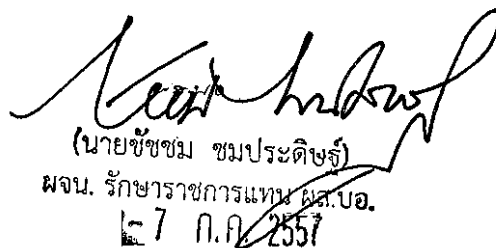 (นายชัชชม ชมประดิษฐ์)
ผจน. รักษาราชการแทน ผส.บอ.
- 7 ก.ค. 2557